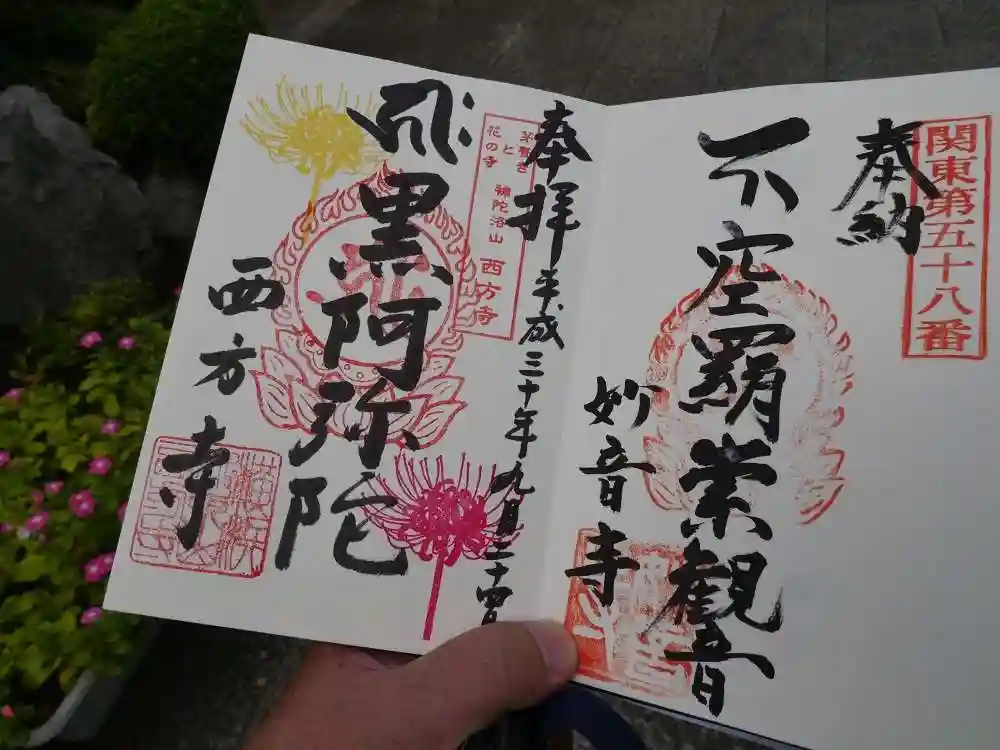 関東第五十八番
奉納
不空羂索観音
妙音寺
奉拝
平成三十年九月二十四日
茅葺き
と
花の寺
補陀洛山
西方寺
飛黒阿弥陀
西方寺